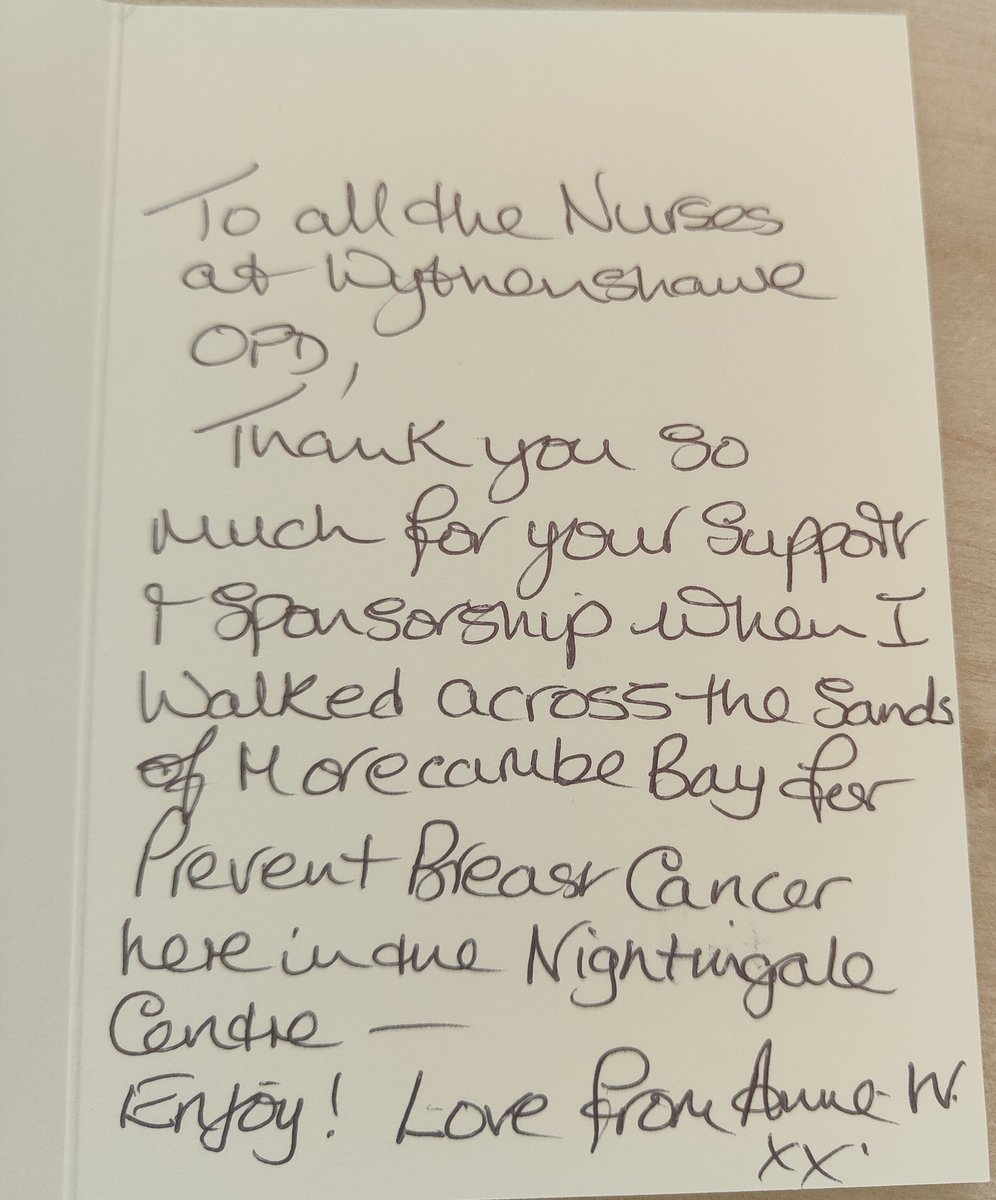 To all the Nurses
at Wythenshawe
OPD,
Thank you so
much for your Support
& Sponsorship when I
Walked across the Sands
of Morecambe Bay for
Prevent Breast Cancer
here in the Nightingale
Centre —
Enjoy! Love from Anne W.
xx